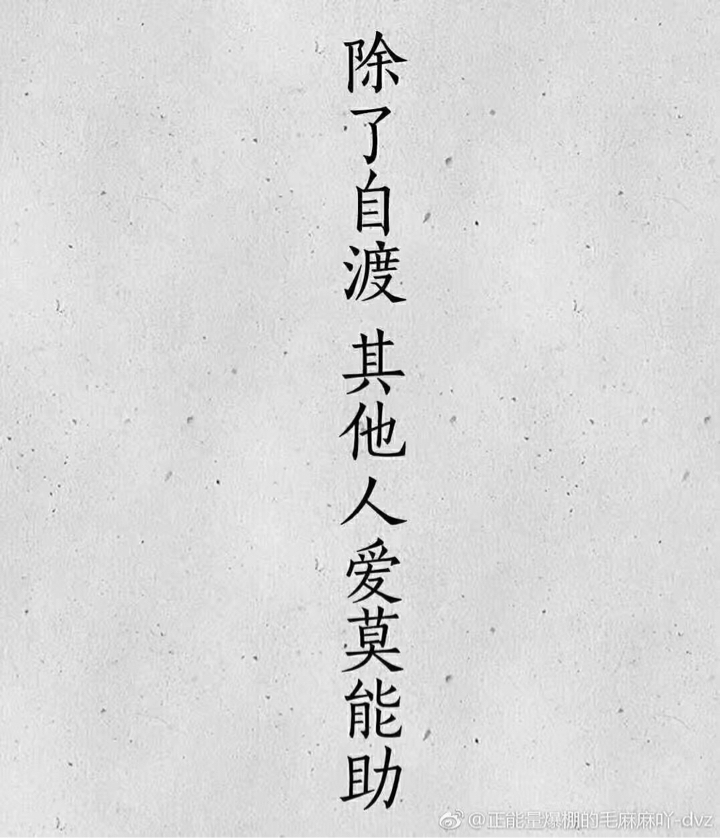 除了自渡 其他人爱莫能助
@正能量爆棚的毛麻麻吖-dvz